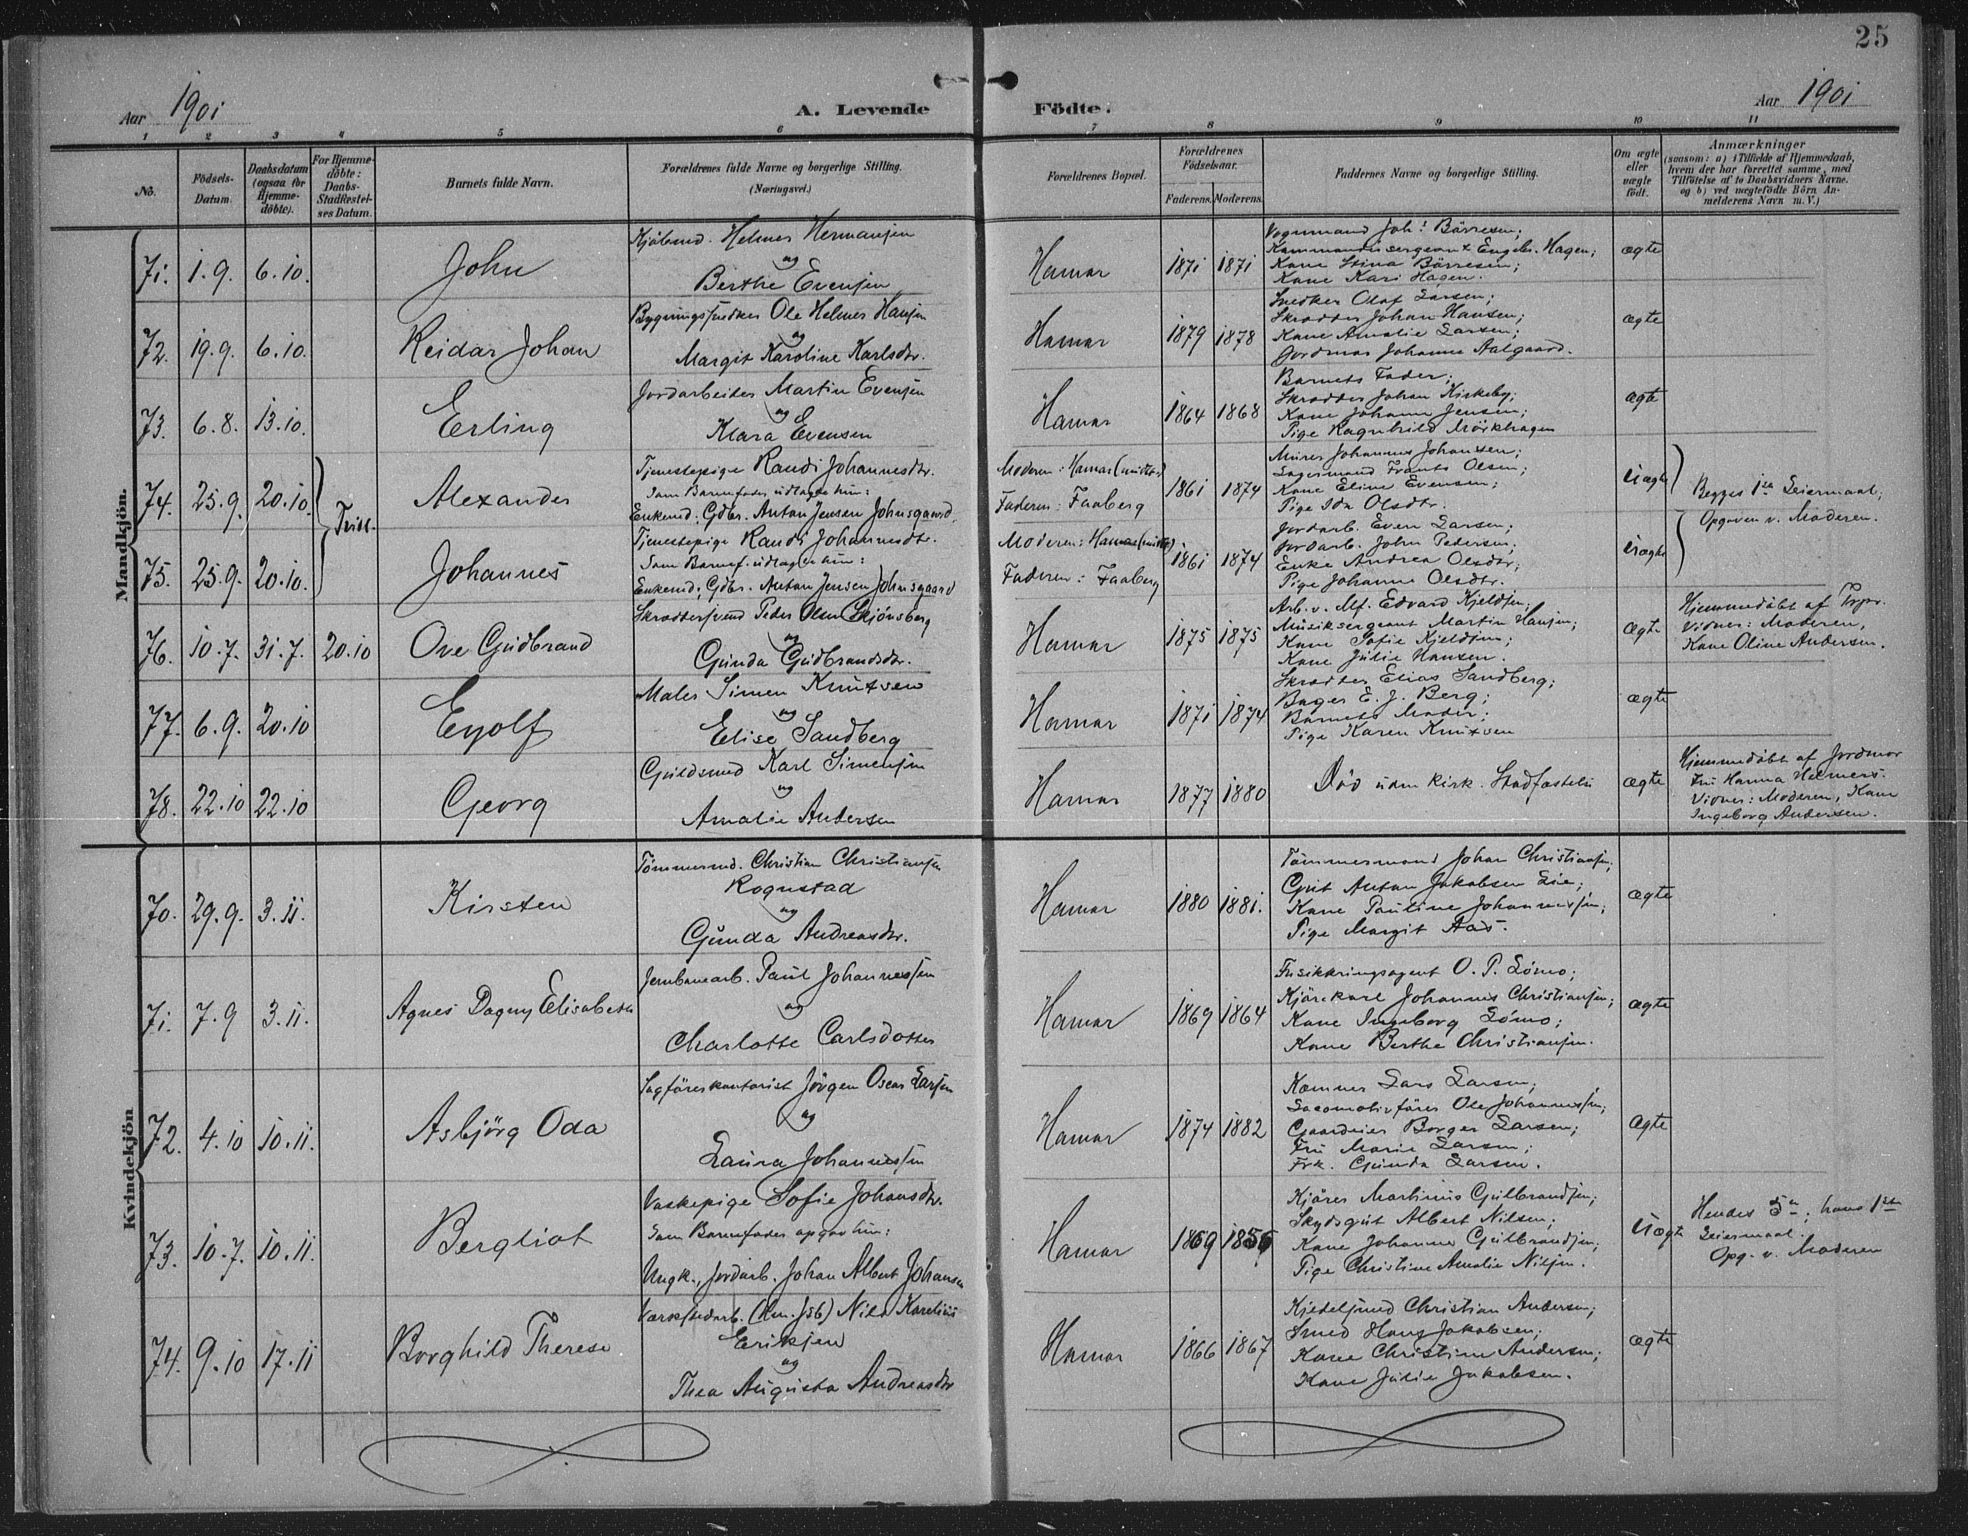 25
Aar 1901
A. Levende
Födte.
Aar 1901
1 2 3 4 5 6 7 8 9 10 11
No.
Födsels-
Datum.
Daabsdatum
(ogsaa for
Hjemme-
döbte).
For Hjemme-
döbte:
Daabs-
Stadfæstel-
ses Datum.
Barnets fulde Navn.
Forældrenes fulde Navne og borgerlige Stilling.
(Næringsvei.)
Forældrenes Bopæl.
Forældrenes
Födselsaar.
Faderens. Moderens.
Faddernes Navne og borgerlige Stilling.
Om ægte
eller
uægte
födt.
Anmærkninger
(saasom: a) i Tilfælde af Hjemmedaab,
hvem der har forrettet samme, med
Tilföielse af to Daabsvidners Navne.
og b) ved uægtefödte Börn An-
melderens Navn m. V.)
Mandkjön.
71. 1.9. 6.10. John
Kjøbmd. Helmer Hermansen
og
Berthe Evensen
Hamar 1871 1871
Vognmand Joh: Børresen;
Kommandersergeant Engebr. Hagen;
Kone Stina Børresen;
Kone Kari Hagen.
ægte
72. 19.9. 6.10. Reidar Johan
Bygningssnedker Ole Helmer Hansen
og
Margit Karoline Karlsdtr.
Hamar 1879 1878
Snedker Olaf Larsen;
Skrædder Johan Hansen;
Kone Amalie Larsen;
Jordmor Johanne Aalgaard.
ægte
73. 6.8. 13.10. Erling
Jordarbeider Martin Evensen
og
Klara Evensen
Hamar 1864 1868
Barnets Fader;
Skrædder Johan Kirkeby;
Kone Johanne Jensen;
Pige Ragnhild Mörkhagen
ægte
74. 25.9. 20.10. Tvill. Alexander
Tjenestepige Randi Johannesdtr.
Som Barnefader udlagte hun:
Enkemd: Gdbr. Anton Jensen Johnsgaard.
Moderen: Hamar (midtb)
Faderen: Faaberg
1861 1874
Murer Johannes Johansen;
Sagermand Frants Olsen;
Kone Eline Evensen;
Pige Ida Olsdtr.
uægte
Begges 1ste Leiermaal;
Opgaven v. Moderen.
75. 25.9. 20.10. Johannes
Tjenestepige Randi Johannesdtr.
Som Barnef. udlagte hun:
Enkemd; Gdbr. Anton Jensen Johnsgaard
Moderen: Hamar (midtb)
Faderen: Faaberg
1861 1874
Jordarb. Even Larsen;
Jordarb. John Pedersen;
Enke Andrea Olsdtr;
Pige Johanne Olsdtr.
uægte
76. 10.7. 31.7. 20.10 Ove Gudbrand
Skræddersvend Peder Olsen Skjønsberg
og
Gunda Gudbrandsdtr.
Hamar 1875 1875
Arb. v. Mf. Edvard Kjeldsen;
Musiksergeant Martin Hansen;
Kone Sofie Kjeldsen;
Kone Julie Hansen.
ægte
Hjemmedøbt af
Vidner: Moderen,
Kone Oline Andersen.
77. 6.9. 20.10 Eyolf
Maler Simen Knutsen
og
Elise Sandberg
Hamar 1871 1874
Skrædder Elias Sandberg;
Bager E. J. Berg;
Barnets Moder;
Pige Karen Knutsen
ægte
78. 22.10 22.10 Georg
Guldsmed Karl Simensen
og
Amalie Andersen
Hamar 1877 1880
Død uden kirk. Stadfæstelse
ægte
Hjemmedøbt af Jordmor
Fru Hanna Helmers.
Vidner: Moderen, Kone
Ingeborg Andersen.
Kvindekjön
70. 29.9. 3.11. Kirsten
Tømmermd. Christian Christiansen
Rognstad
og
Gunda Andreasdtr.
Hamar 1880 1881.
Tømmermand Johan Christiansen;
Anton Jakobsen Lie;
Kone Pauline Johannessen;
Pige Margit Aas.
ægte
71. 7.9 3.11. Agnes Dagny Elisabeth
Jernbanearb. Paul Johannessen
og
Charlotte Carlsdotter
Hamar 1869 1864
Forsikkringsagent O. P. Lömo;
Kjørekarl Johannes Christiansen;
Kone Ingeborg Lömo;
Kone Berthe Christiansen.
ægte
72. 4.10 10.11. Asbjörg Oda
Sagførerkontorist Jörgen Oscar Larsen
og
Laura Johannessen
Hamar 1874 1882
Kæmner Lars Larsen;
Locomotivförer Ole Johannessen;
Gaardeier Borger Larsen;
Fru Marie Larsen;
Frk. Gunda Larsen.
ægte
73. 10.7. 10.11. Bergliot
Vaskepige Sofie Johansdtr.
Som Barnefader opgav hun:
Ungk., Jordarb. Johan Albert Johansen
Hamar 1869 1856
Kjører Martinius Gulbrandsen;
Skydsgut Albert Nilsen;
Kone Johanne Gulbrandsen;
Pige Christine Amalie Nilsen.
uægte
Hendes 5te; hans 1ste
Leiermaal.
Opg. v. Moderen
74. 9.10 17.11 Borghild Therese
Værkstedarb. (Hm. Jsb) Nils Karelius
Eriksen
og
Thea Augusta Andreasdtr
Hamar 1866 1867
Kjedelsmed Christian Andersen;
Smed Hans Jakobsen;
Kone Christine Andersen;
Kone Julie Jakobsen.
ægte